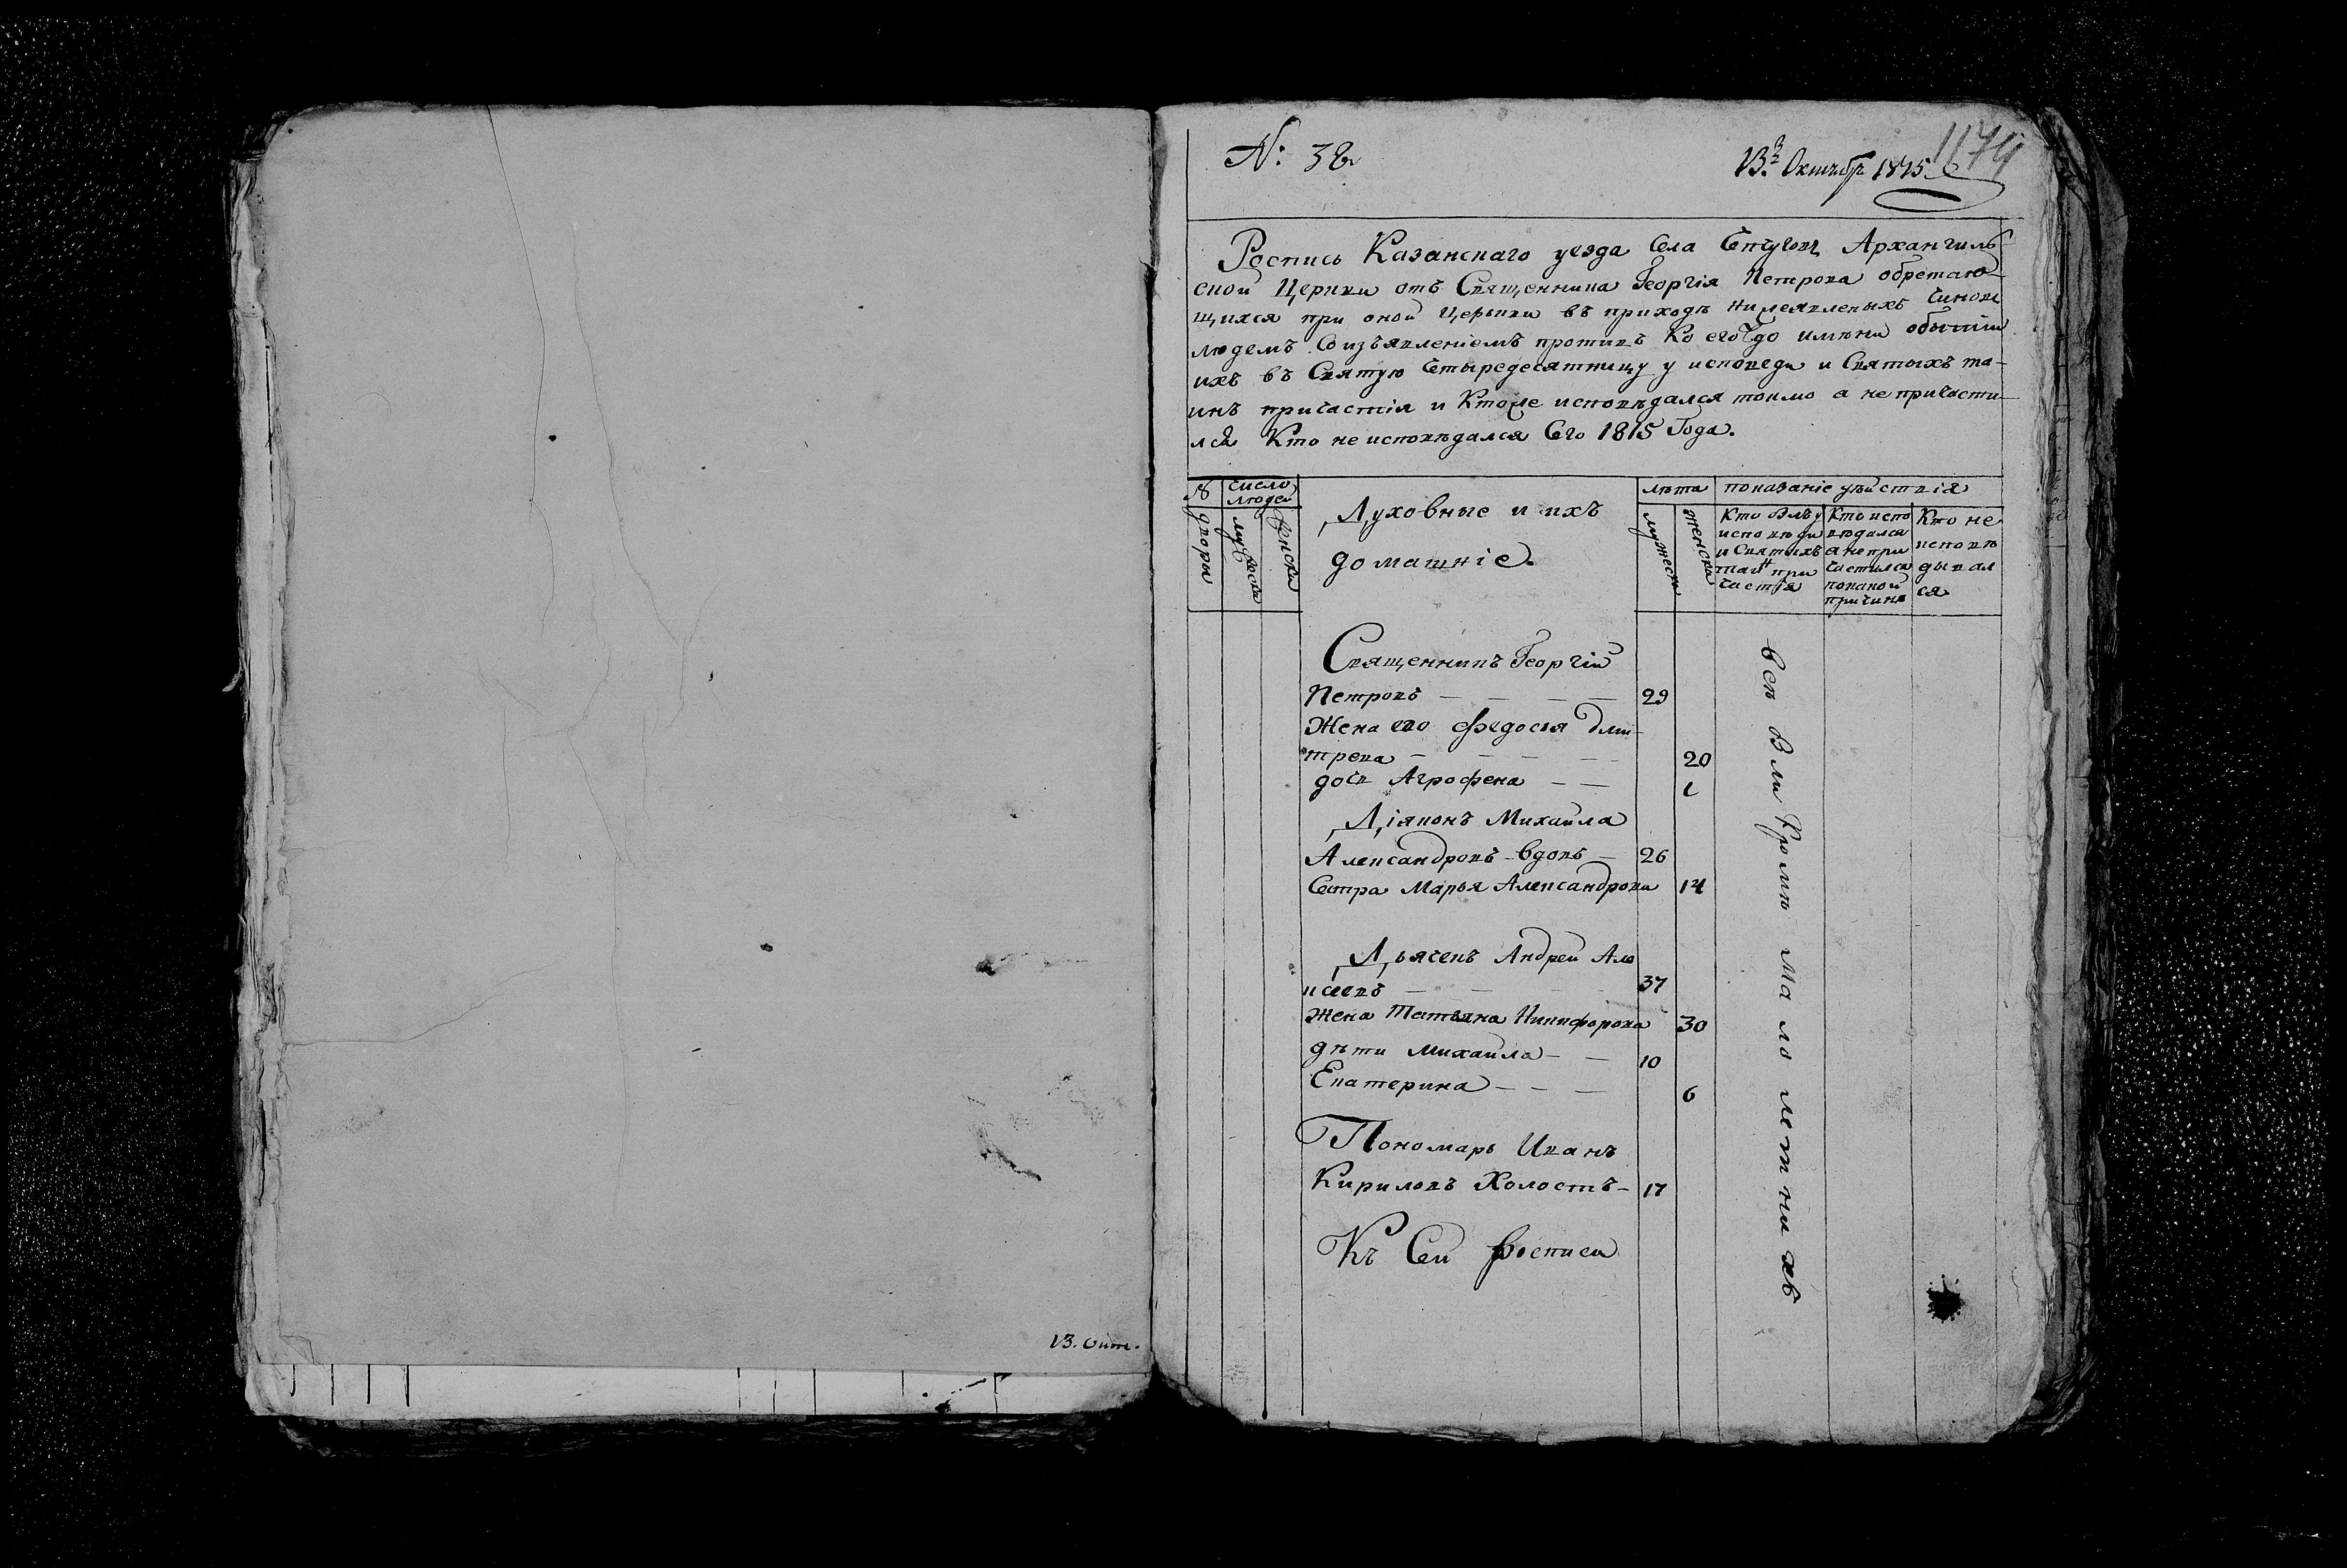 В. Окт.
№: 38
1174
В. 2 Октябр 1815
Роспись Казанскаго уезда Села Епуговъ Архангиль-
ской Церкви отъ Священника Георгія Петрова обретаю-
щихся при оной Церькви въ приходѣ нижеявленыхъ чинов
людемъ Соизъявленіемъ противъ коегождо имѣни обытіи
ихъ въ Святую четыредесятницу у исповеди и Святыхъ та-
инъ причастія и Ктоже исповѣдался токмо а не причасти-
лся Кто не исповѣдался Сего 1815 Года.
№ дворы
число людей
мужеска
женска
Духовные и ихъ
домашніе.
лѣта
мужеск
женски
показаніе дѣйствія
Кто былъ у
исповѣди
и Святыхъ
таи<sup>н</sup> при
частія
Кто испо
вѣдался
а не при
частился
покакой
причинѣ
Кто не
исповѣ
дывал
ся
Священникъ Георгій
Петровъ — — — — 29
Жена его Федосья Дми-
трева — — — — 20
дочь Агрофена — — 1
Діяконъ Михаила
Александровъ - вдовъ — 26
Сестра Марья Александрова 14
Дьячекъ Андрей Але
ксеевъ — — — 37
жена Татьяна Никифорова 30
дѣти Михаила — — 10
Екатерина — — — 6
Пономарь Иванъ
Кириловъ Холостъ — 17
Къ Сей росписи
всѣ были Кромѣ мало летнихъ